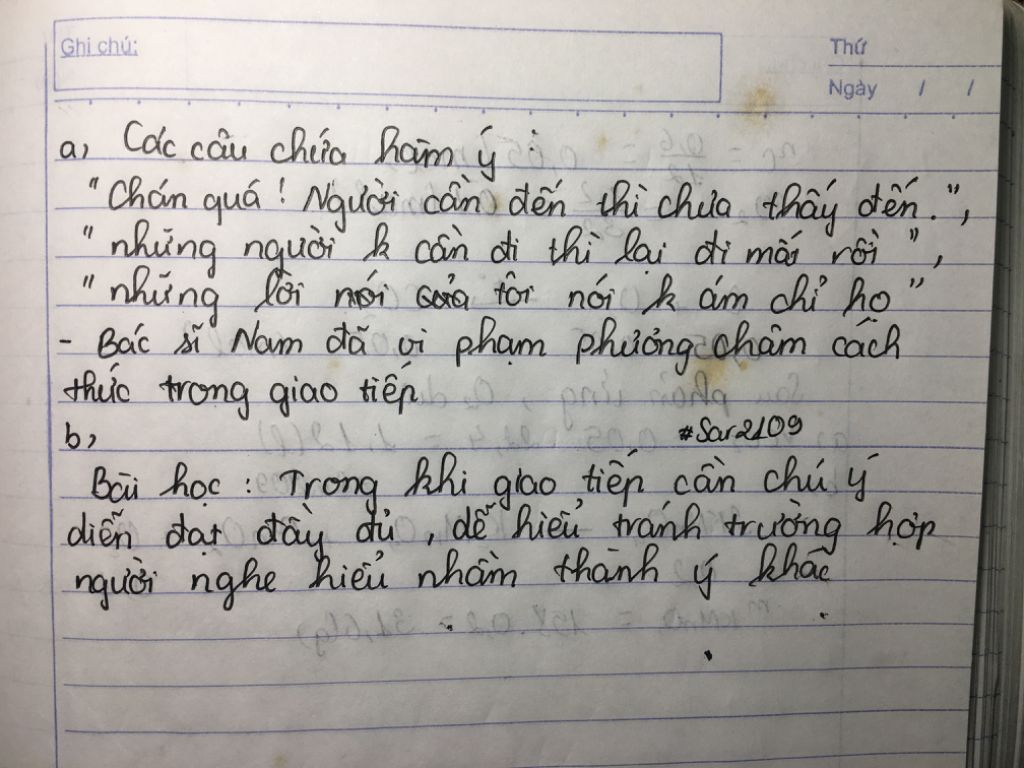 Ghi chú:
Thứ
Ngày / /
a, Các câu chứa hàm ý :
"Chán quá! Người cần đến thì chưa thấy đến.",
"những người k cần đi thì lại đi mất rồi",
"những lời nói của tôi nói k ám chỉ họ"
- Bác sĩ Nam đã vi phạm phương châm cách
thức trong giao tiếp
b, #Sar2109
Bài học : Trong khi giao tiếp cần chú ý
diễn đạt đầy đủ, dễ hiểu tránh trường hợp
người nghe hiểu nhầm thành ý khác